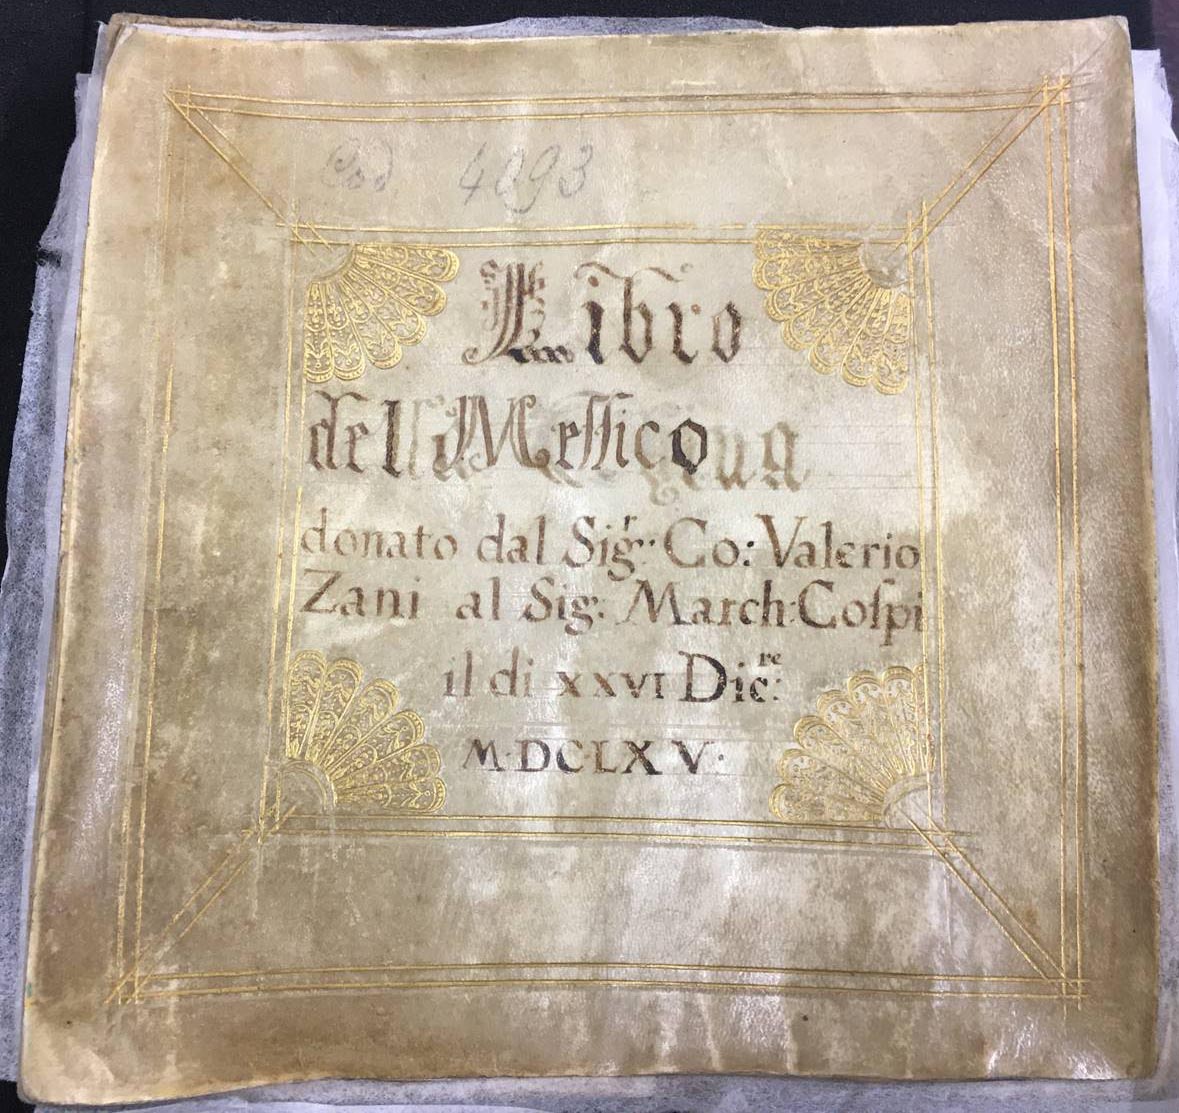 Cod. 4093
Libro
del Meſſico
donato dal Sig.r: Co: Valerio
Zani al Sig: March: Coſpi
il di XXVI Dic.re:
M·DCLXV·